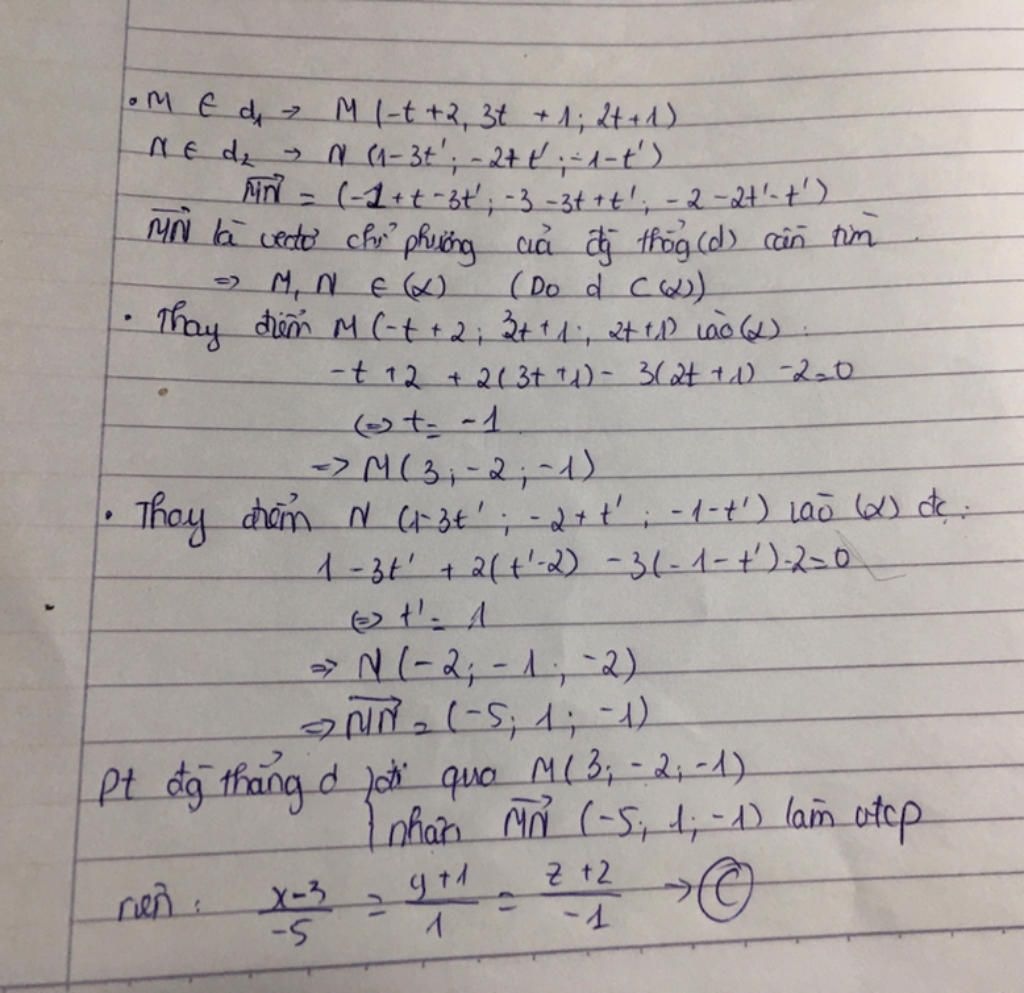 • M ∈ d₁ → M (-t+2, 3t +1; 2t+1)
N ∈ d₂ → N (1-3t'; -2+t'; -1-t')
MN = (-1+t-3t'; -3-3t+t'; -2-2t'-t')
MN là vectơ chỉ phương củả đg thẳg (d) cần tìm
=> M, N ∈ (α) (Do d ⊂ (α))
• Thay điểm M (-t+2; 3t+1; 2t+1) vào (α):
-t+2 + 2(3t+1) - 3(2t+1) -2=0
(=> t= -1
=> M(3; -2; -1)
• Thay điểm N (1-3t'; -2+t'; -1-t') vào (α) đc:
1-3t' + 2(t'-2) -3(-1-t')-2=0
(=> t'= 1
=> N(-2; -1; -2)
=> MN = (-5; 1; -1)
Pt đg thẳng d { đi qua M(3; -2; -1)
nhận MN (-5; 1; -1) làm vtcp
nên: x-3/-5 = y+1/1 = z+2/-1 → C